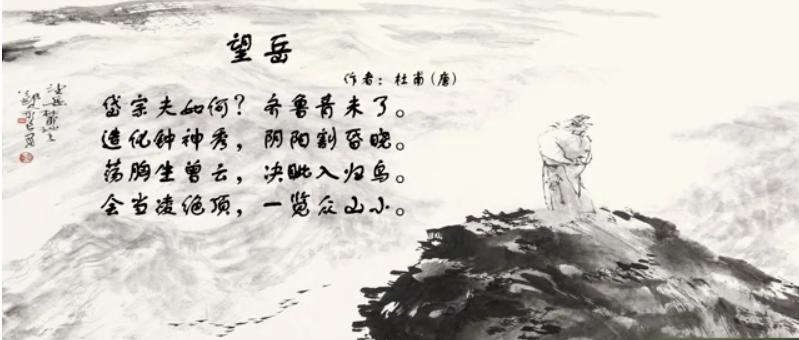 望岳
作者：杜甫（唐）
岱宗夫如何？齐鲁青未了。
造化钟神秀，阴阳割昏晓。
荡胸生曾云，决眦入归鸟。
会当凌绝顶，一览众山小。